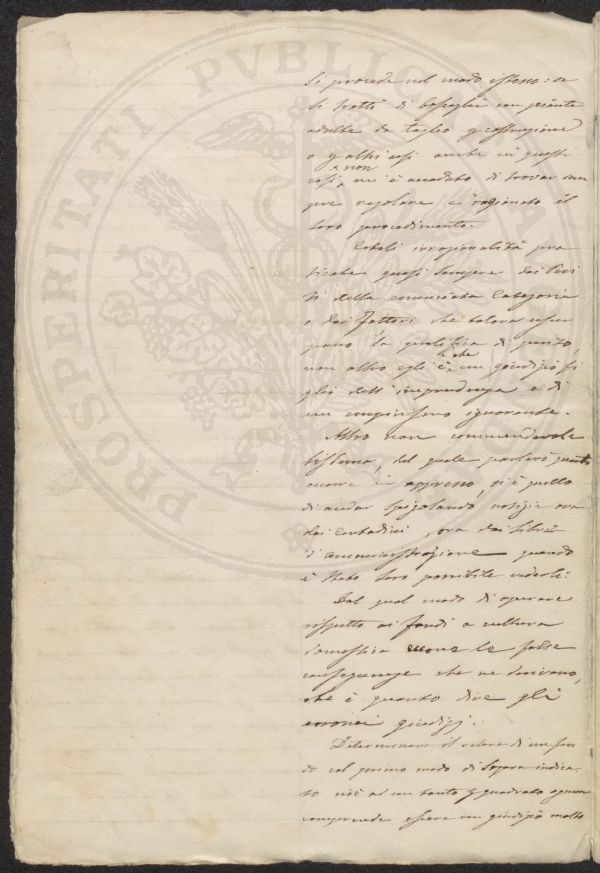 si procede nel modo istesso: se
si tratti di boscaglie con piante
adulte da taglio
o altri casi anche in questi
casi, non mi è accaduto di trovar sem
pre regolare e ragionato il
loro procedimento.
Cotali irrazionalità pra
ticate quasi sempre dai Peri
ti della enunciata Categoria
e dai Fattori che talora usur
pano la qualifica di perito,
non altro egli è, che un giudizio fi
glio dell'imprudenza e di
un empirismo ignorante.
Altro non commendevole
sistema, del quale parlerò quanto
occorre in appresso, si è quello
di andar spigolando notizie ora
dai Contadini, ora dai libri
d'amministrazione quando
è stato loro possibile vederli.
Dal qual modo di operare
rispetto ai fondi a cultura
domestica le false
conseguenze che ne derivano,
che è quanto dire gli
erronei giudizj.
Determinare il valore di un fon
do col primo modo di sopra indica
to cioè ad un tanto quadrato ognun
comprende essere un giudizio molto
PROSPERITATI PVBLICAE